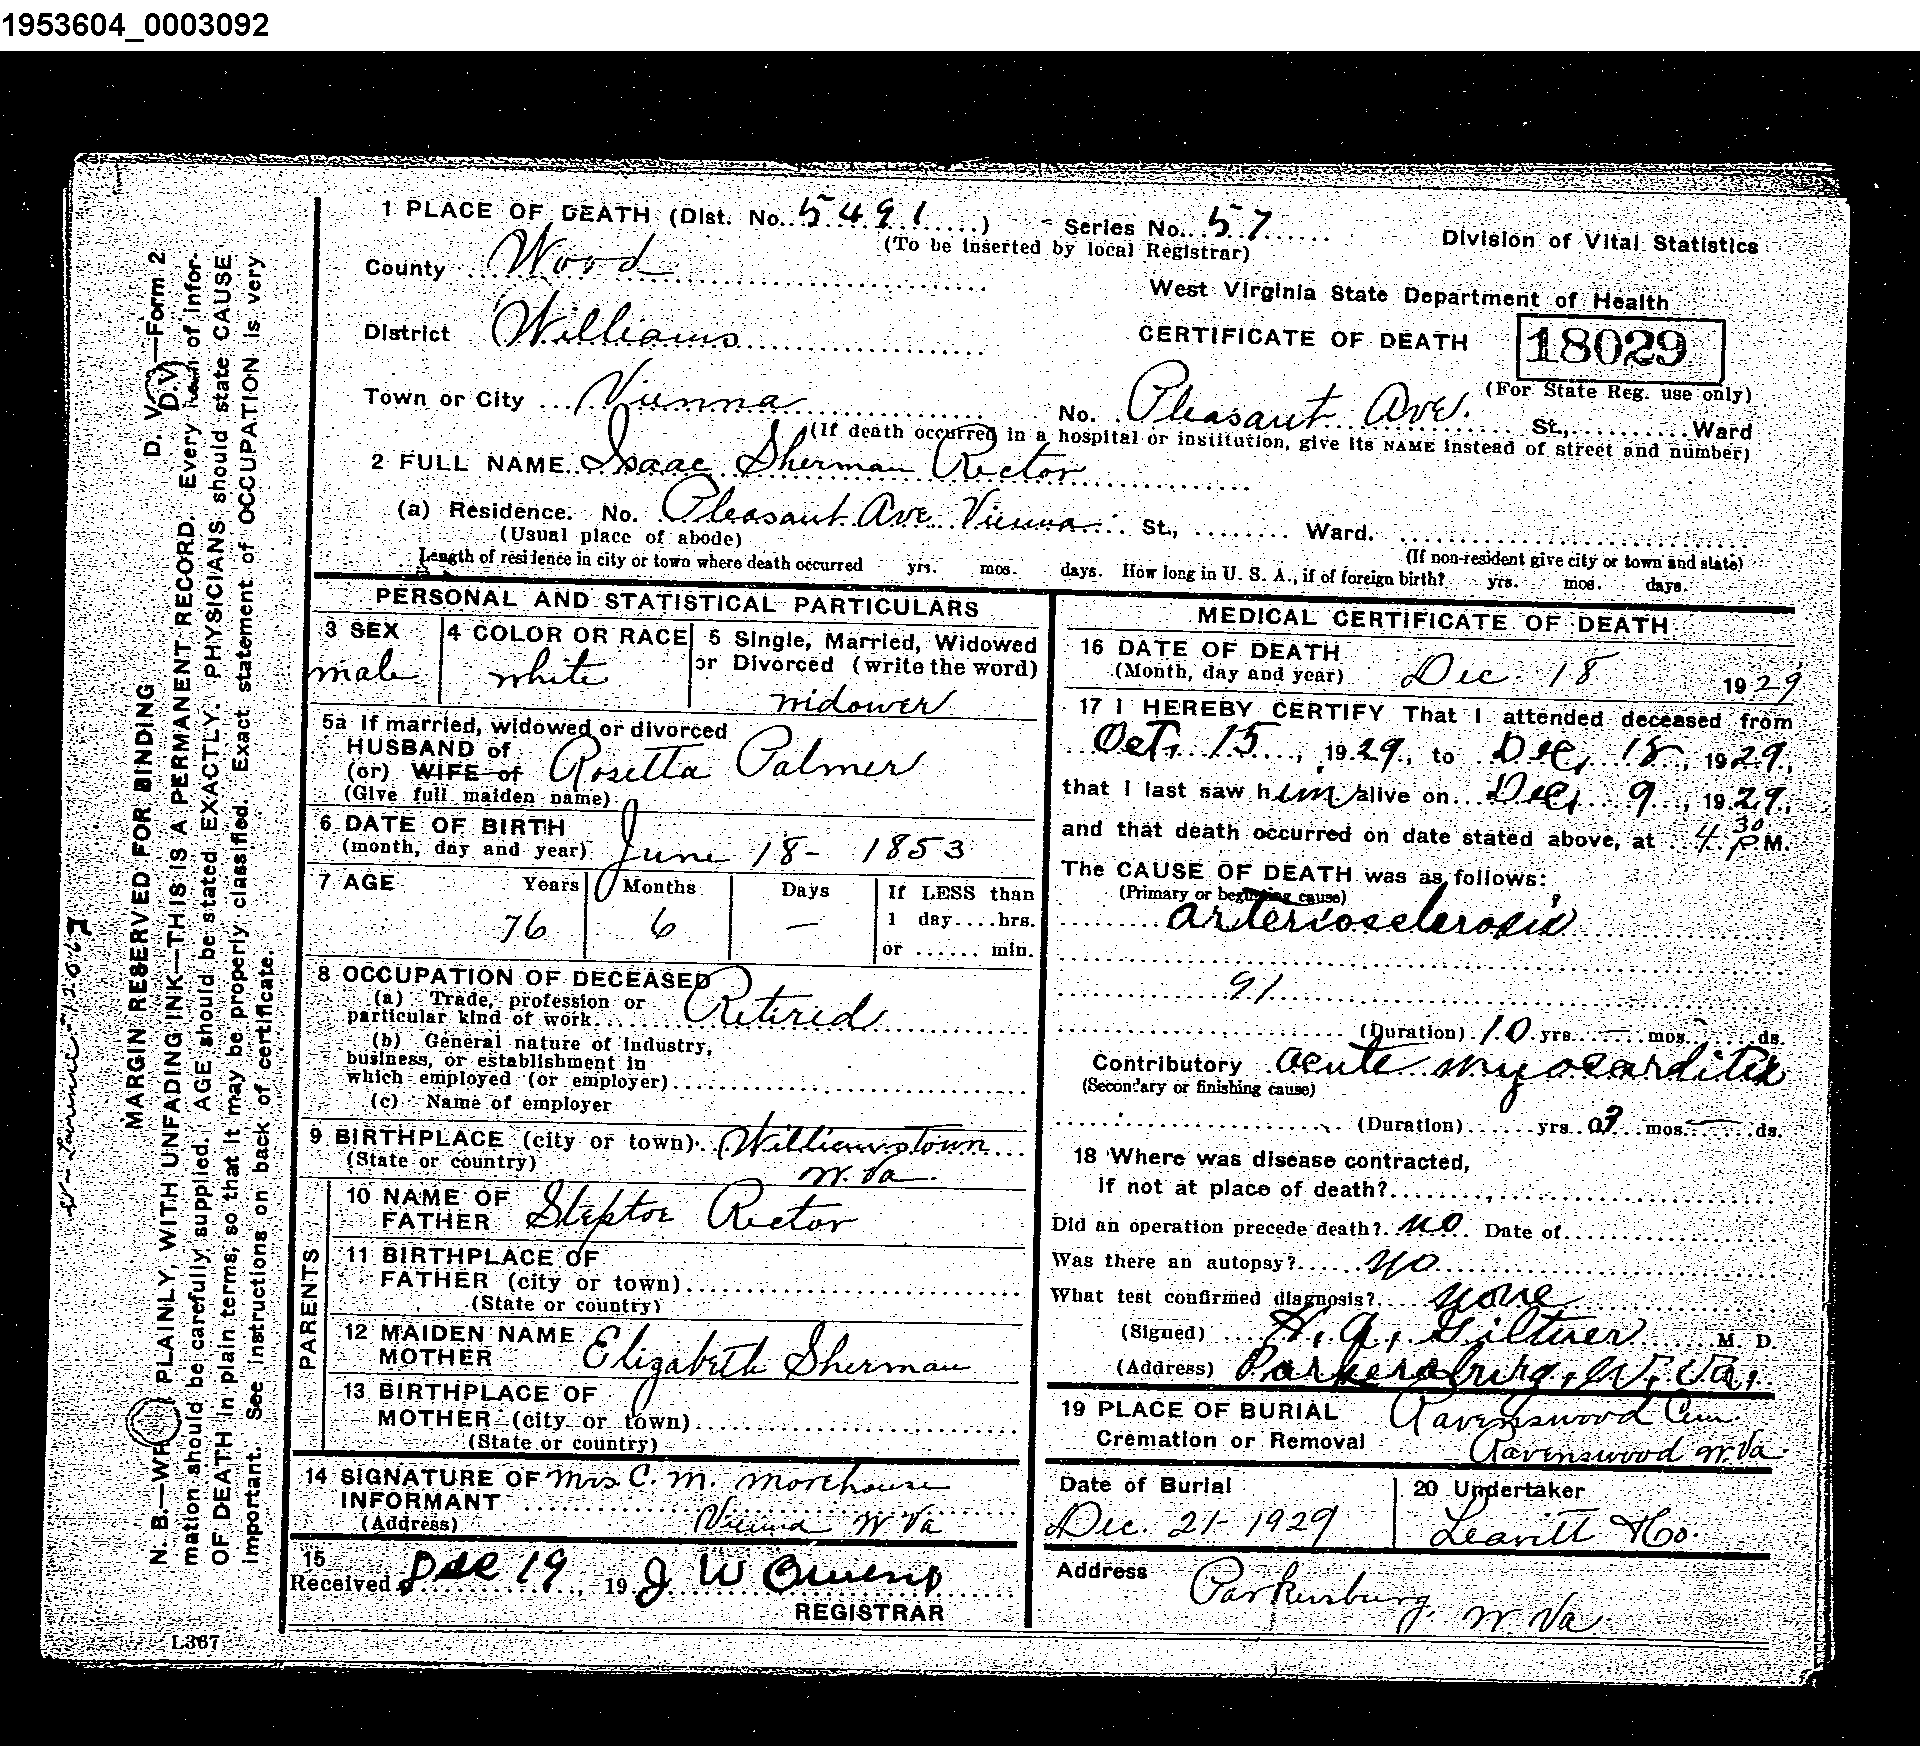 1953604_0003092
1 PLACE OF DEATH (Dist. No. 5491) Series No. 57
(To be inserted by local Registrar)
Division of Vital Statistics
County Wood
West Virginia State Department of Health
District Williams
CERTIFICATE OF DEATH 18029
(For State Reg. use only)
Town or City Vienna No. Pleasant Ave. St., Ward
(If death occurred in a hospital or institution, give its NAME instead of street and number)
2 FULL NAME Isaac Sherman Rector
(a) Residence. No. Pleasant Ave Vienna St., Ward.
(Usual place of abode) (If non-resident give city or town and state)
Length of residence in city or town where death occurred yrs. mos. days. How long in U. S. A., if of foreign birth? yrs. mos. days.
PERSONAL AND STATISTICAL PARTICULARS
3 SEX
male
4 COLOR OR RACE
white
5 Single, Married, Widowed
or Divorced (write the word)
widower
5a If married, widowed or divorced
HUSBAND of
(or) WIFE of Rosetta Palmer
(Give full maiden name)
6 DATE OF BIRTH
(month, day and year) June 18- 1853
7 AGE Years Months Days If LESS than
76 6 — 1 day....hrs.
or ...... min.
8 OCCUPATION OF DECEASED
(a) Trade, profession or
particular kind of work Retired
(b) General nature of industry,
business, or establishment in
which employed (or employer)
(c) Name of employer
9 BIRTHPLACE (city or town) Williamstown
(State or country) W. Va.
PARENTS
10 NAME OF
FATHER Steptoe Rector
11 BIRTHPLACE OF
FATHER (city or town)
(State or country)
12 MAIDEN NAME
MOTHER Elizabeth Sherman
13 BIRTHPLACE OF
MOTHER (city or town)
(State or country)
14 SIGNATURE OF Mrs C. M. Morehouse
INFORMANT
(Address) Vienna W Va
15
Received Dec 19, 19 J W Owens
REGISTRAR
MEDICAL CERTIFICATE OF DEATH
16 DATE OF DEATH
(Month, day and year) Dec. 18 1929
17 I HEREBY CERTIFY That I attended deceased from
Oct. 15, 1929, to Dec, 18, 1929,
that I last saw him alive on Dec, 9, 1929,
and that death occurred on date stated above, at 4 30 P M.
The CAUSE OF DEATH was as follows:
(Primary or beginning cause)
arteriosclerosis
91
(Duration) 10 yrs. — mos. — ds.
Contributory acute myocarditis
(Secondary or finishing cause)
(Duration) yrs mos — ds.
18 Where was disease contracted,
if not at place of death?
Did an operation precede death? no Date of
Was there an autopsy? no
What test confirmed diagnosis? none
(Signed) H. A. Giltner M. D.
(Address) Parkersburg, W. Va.
19 PLACE OF BURIAL Ravenswood Cem
Cremation or Removal Ravenswood W. Va.
Date of Burial
Dec. 21- 1929
20 Undertaker
Leavitt & Co.
Address Parkersburg, W. Va
D. V. —Form 2
D.V.
MARGIN RESERVED FOR BINDING
N. B.—WR PLAINLY, WITH UNFADING INK—THIS IS A PERMANENT RECORD. Every item of infor-
mation should be carefully supplied. AGE should be stated EXACTLY. PHYSICIANS should state CAUSE
OF DEATH in plain terms, so that it may be properly classified. Exact statement of OCCUPATION is very
important. See instructions on back of certificate.
L367